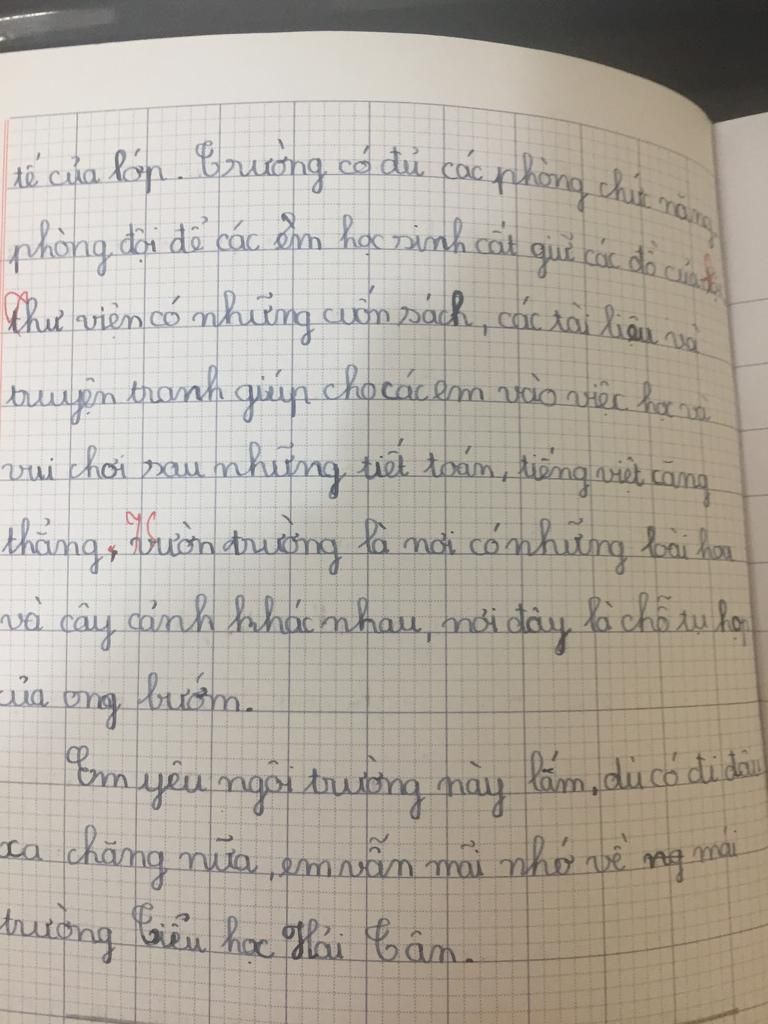 tế của lớp. Trường có đủ các phòng chức năng,
phòng đội để các em học sinh cất giữ các đồ của
Thư viện có những cuốn sách, các tài liệu và
truyện tranh giúp cho các em vào việc học và
vui chơi sau những tiết toán, tiếng việt căng
thẳng, Vườn trường là nơi có những loài hoa
và cây cảnh khác nhau, nơi đây là chỗ tụ họp
của ong bướm.
Em yêu ngôi trường này lắm, dù có đi đâu
xa chăng nữa, em vẫn mãi nhớ về mái
trường Tiểu học Hải Tân.